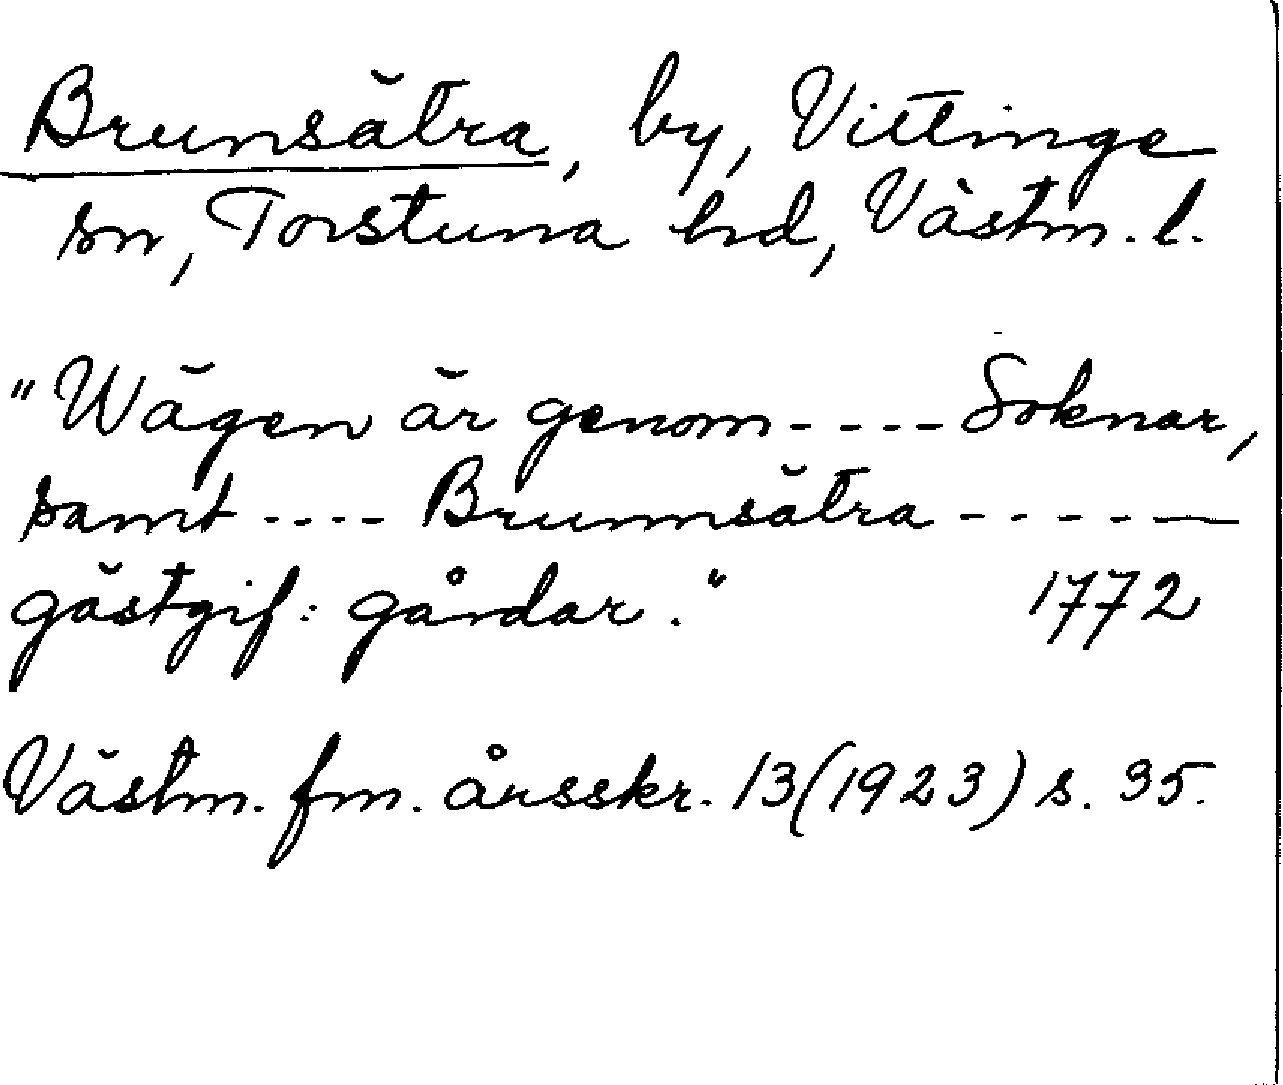 Brunsätra, by, Vittinge
sn, Torstuna hd, Västm. l.
"Wägen är genom ---- Soknar,
samt ---- Brunnsätra ------
gästgif: gårdar." 1772
Västm. fm. årsskr. 13 (1923) s. 35.